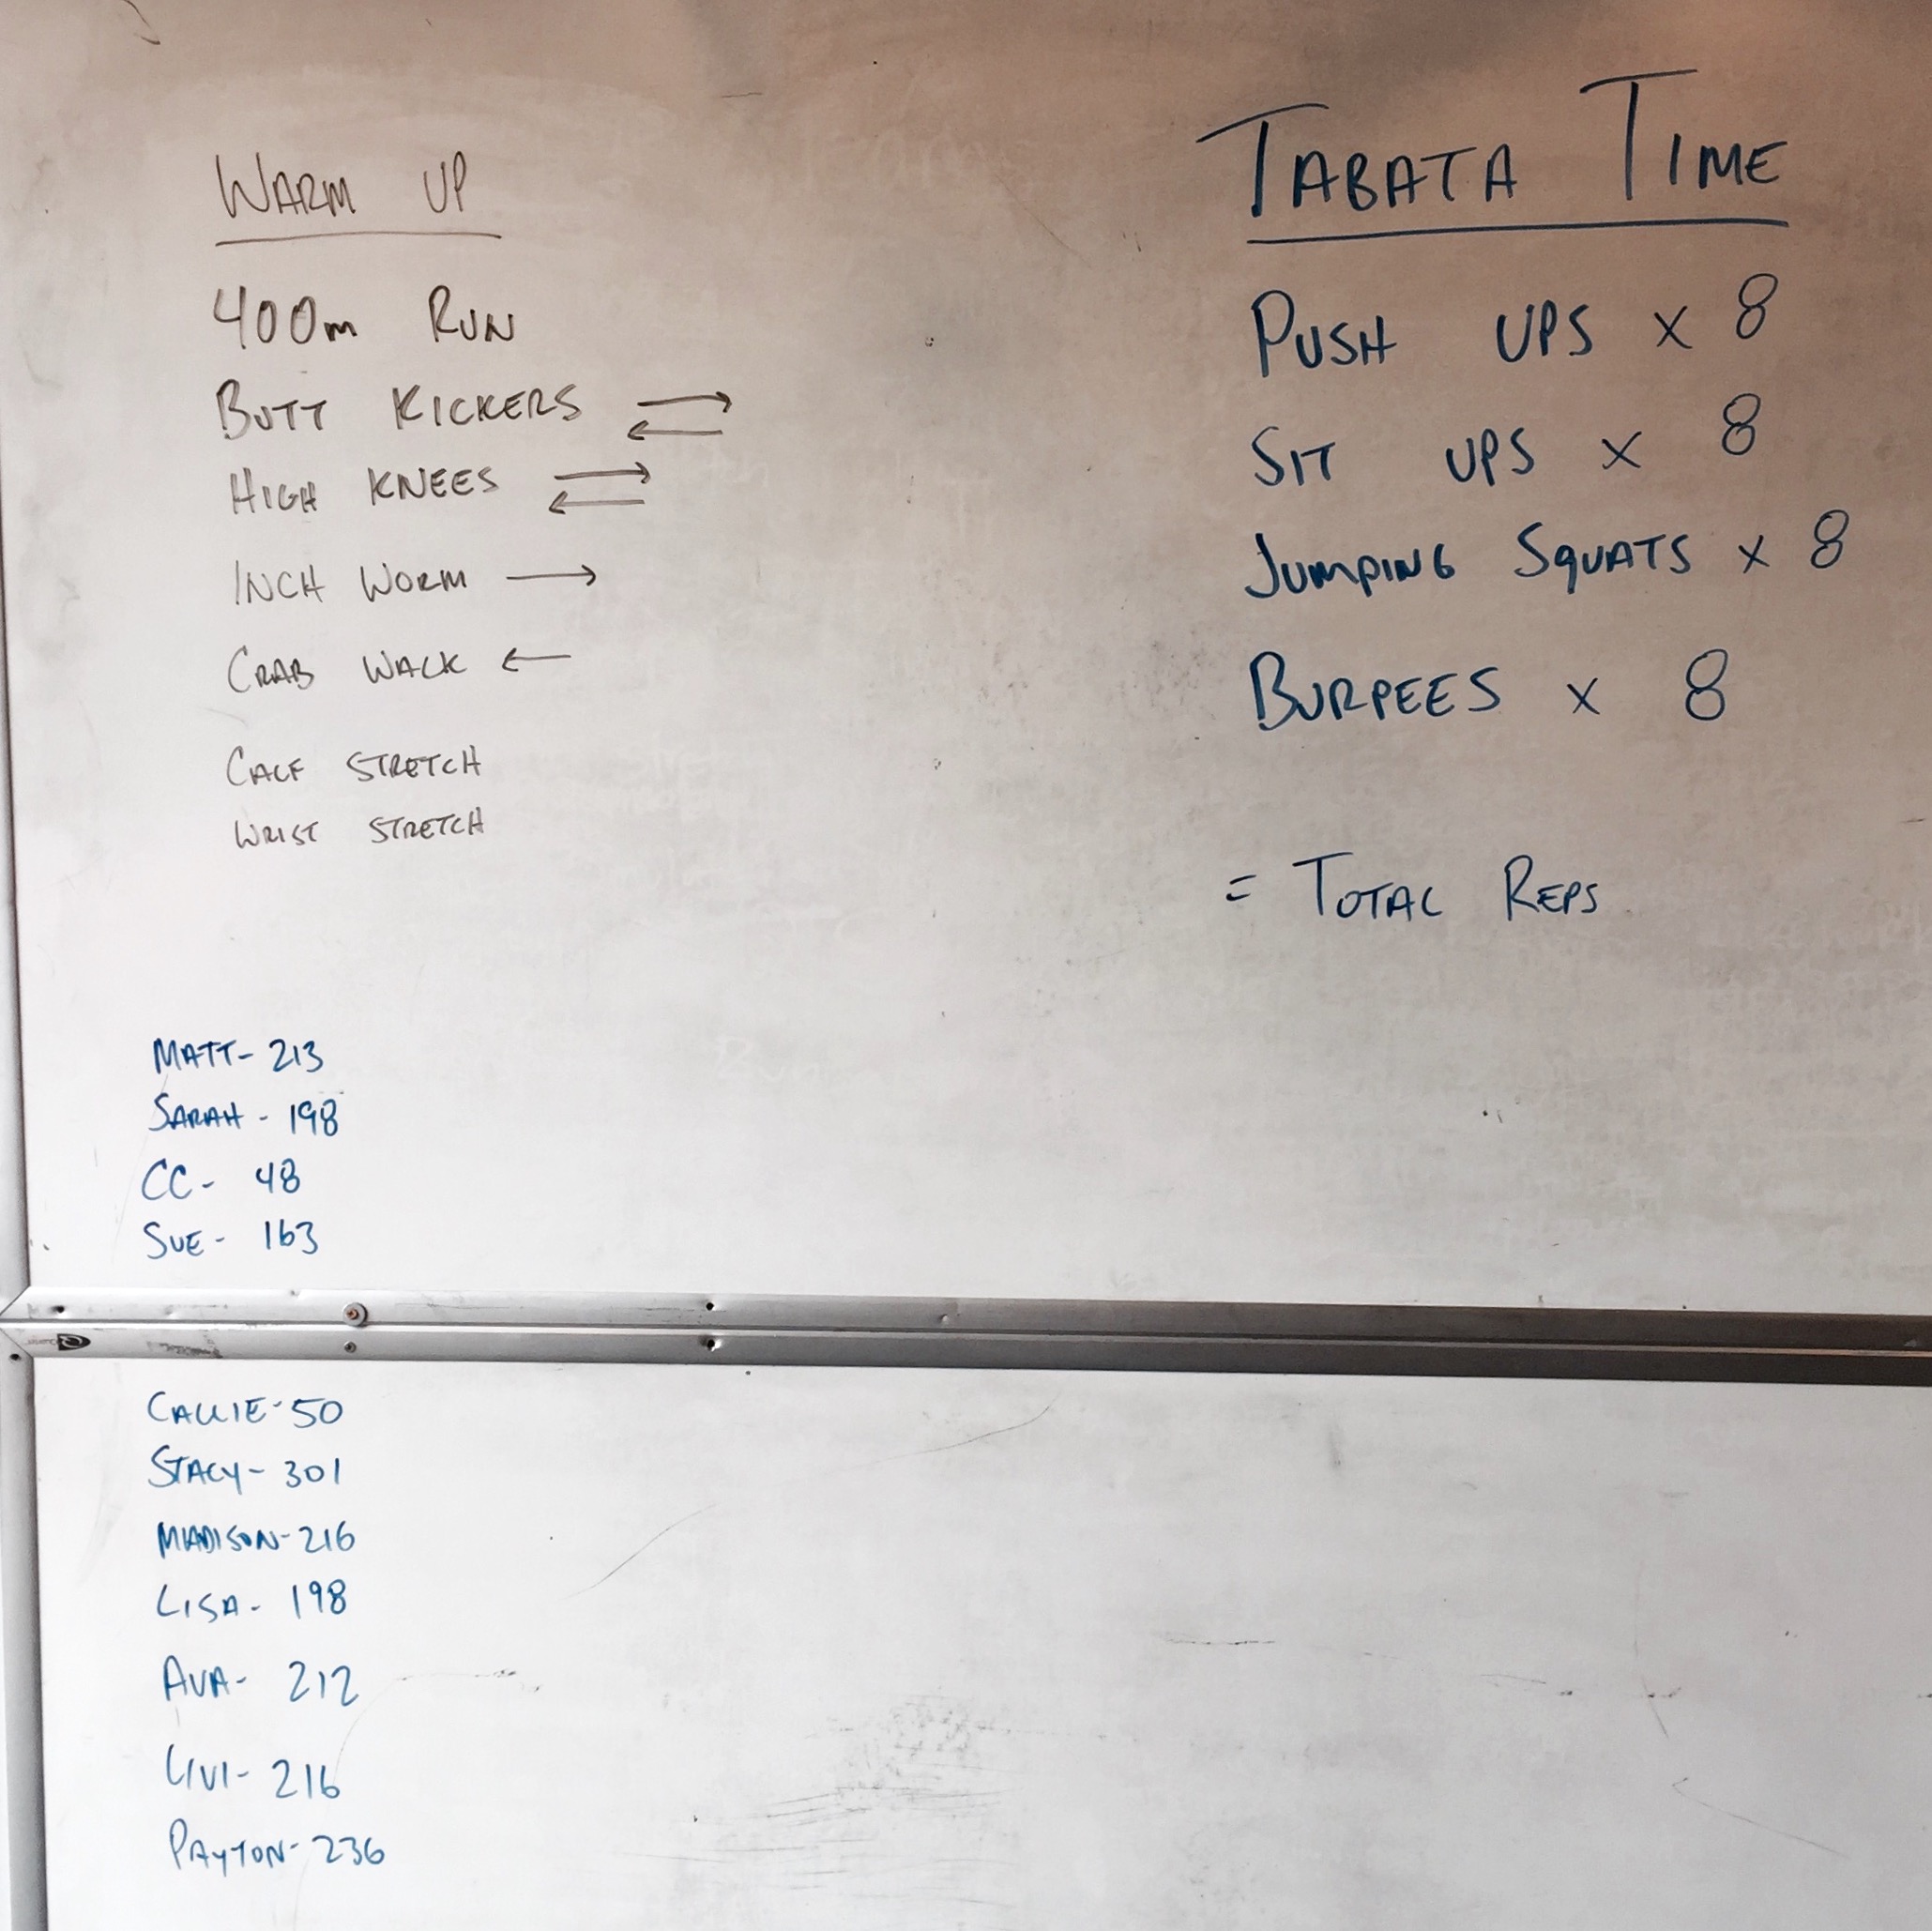 WARM UP
400m RUN
BUTT KICKERS → ←
HIGH KNEES → ←
INCH WORM →
CRAB WALK ←
CALF STRETCH
WRIST STRETCH
TABATA TIME
PUSH UPS x 8
SIT UPS x 8
JUMPING SQUATS x 8
BURPEES x 8
= TOTAL REPS
MATT- 213
SARAH - 198
CC- 48
SUE- 163
CALLIE- 50
STACY- 301
MADISON- 216
LISA- 198
AVA- 212
LIVI- 216
PAYTON- 236